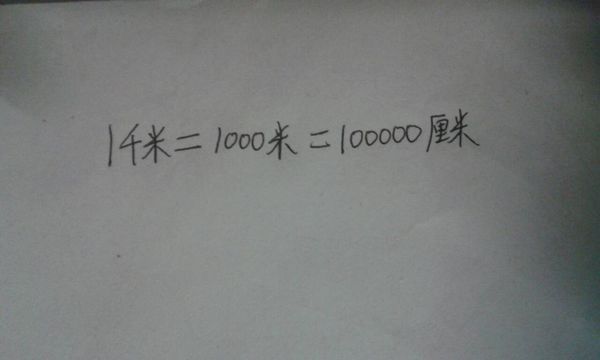 1千米=1000米=100000厘米